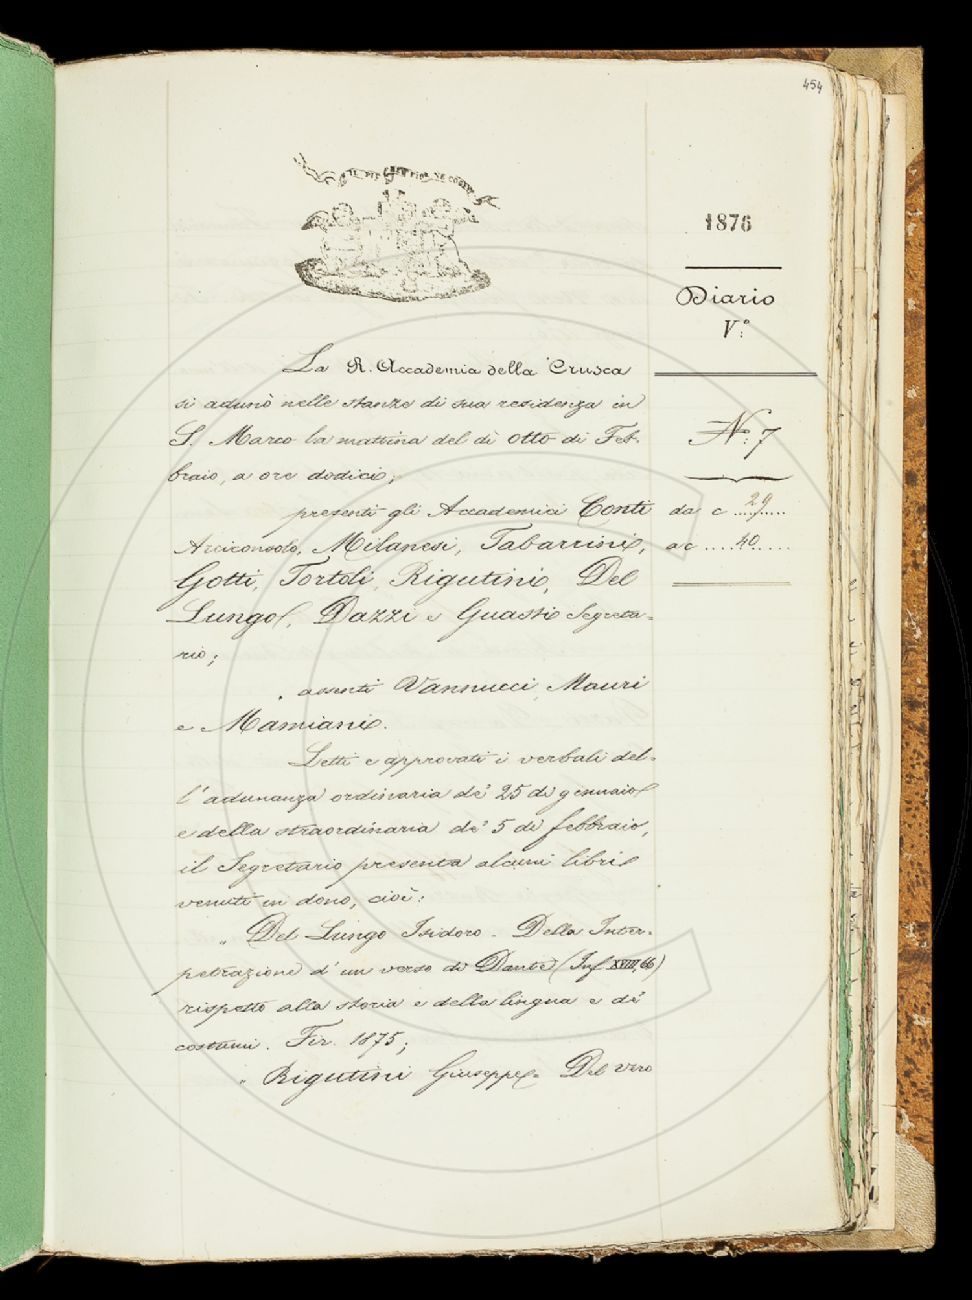 454
IL PIÙ BEL FIOR NE COGLIE
1876
Diario
V.º
N.º 7
da c ... 29 ...
a c .... 40 ....
La R. Accademia della Crusca
si adunò nelle stanze di sua residenza in
S. Marco la mattina del dì otto di Feb-
braio, a ore dodici;
presenti gli Accademici Conti
Arciconsolo, Milanesi, Tabarrini,
Gotti, Tortoli, Rigutini, Del
Lungo, Dazzi e Guasti Segreta-
rio;
assenti Vannucci, Mauri
e Mamiani.
Letti e approvati i verbali del-
l'adunanza ordinaria de' 25 di gennaio
e della straordinaria de' 5 di febbraio,
il Segretario presenta alcuni libri
venuti in dono, cioè:
„ Del Lungo Isidoro - Della Inter-
petrazione d'un verso di Dante (Inf. XVIII, 66)
rispetto alla storia e della lingua e de'
costumi. Fir. 1875;
„ Rigutini Giuseppe - Del vero